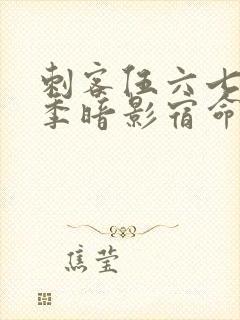 刺客伍六七
季暗影宿命
焦莹